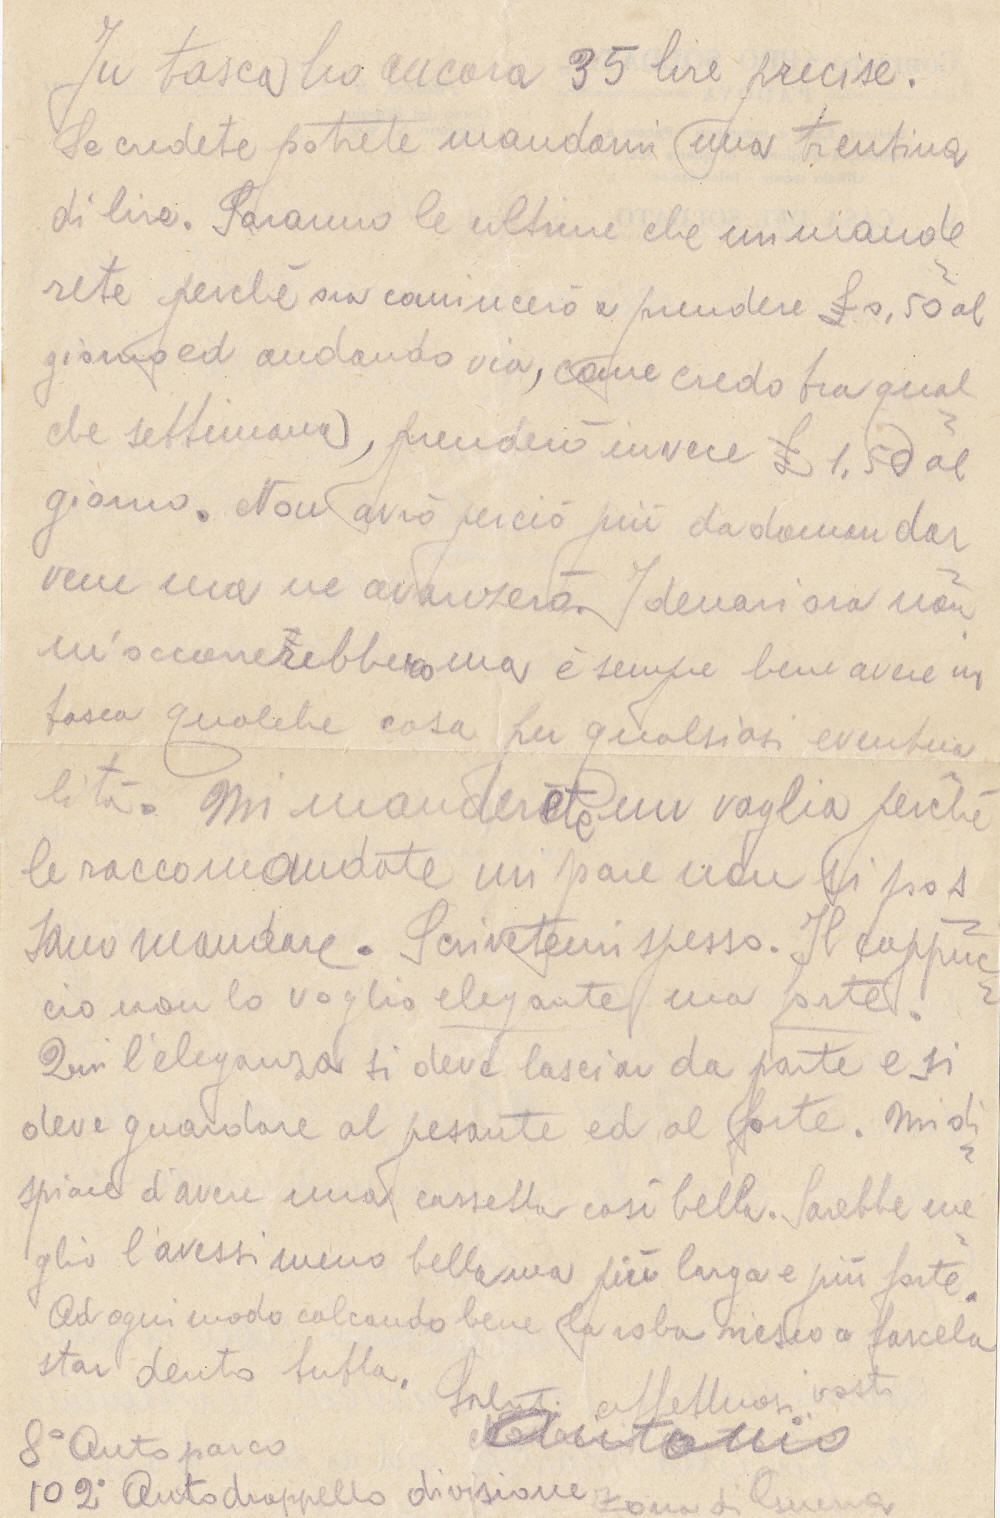 In tasca ho ancora 35 lire precise.
Se credete potrete mandarmi una trentina
di lire. Saranno le ultime che mi mande
rete perché ora comincerò a prendere £ 0,50 al
giorno ed andando via, come credo tra qual
che settimana, prenderò invece £ 1,50 al
giorno. Non avrò perciò più da domandar
vene ma ne avanzerà. I denari ora non
m'occorrerebbero ma è sempre bene avere in
tasca qualche cosa per qualsiasi eventua
lità. Mi manderete un vaglia perché
le raccomandate mi pare non si pos
sano mandare. Scrivetemi spesso. Il cappuc
cio non lo voglio elegante ma forte.
Qui l'eleganza si deve lasciar da parte e si
deve guardare al pesante ed al forte. Mi di
spiace d'avere una cassetta così bella. Sarebbe me
glio l'avessi meno bella ma più larga e più forte.
Ad ogni modo calcando bene la roba riesco a farcela
star dento tutta.
Saluti affettuosi vostro
Antonio
8° Autoparco
102° Autodrappello divisione zona di Guerra